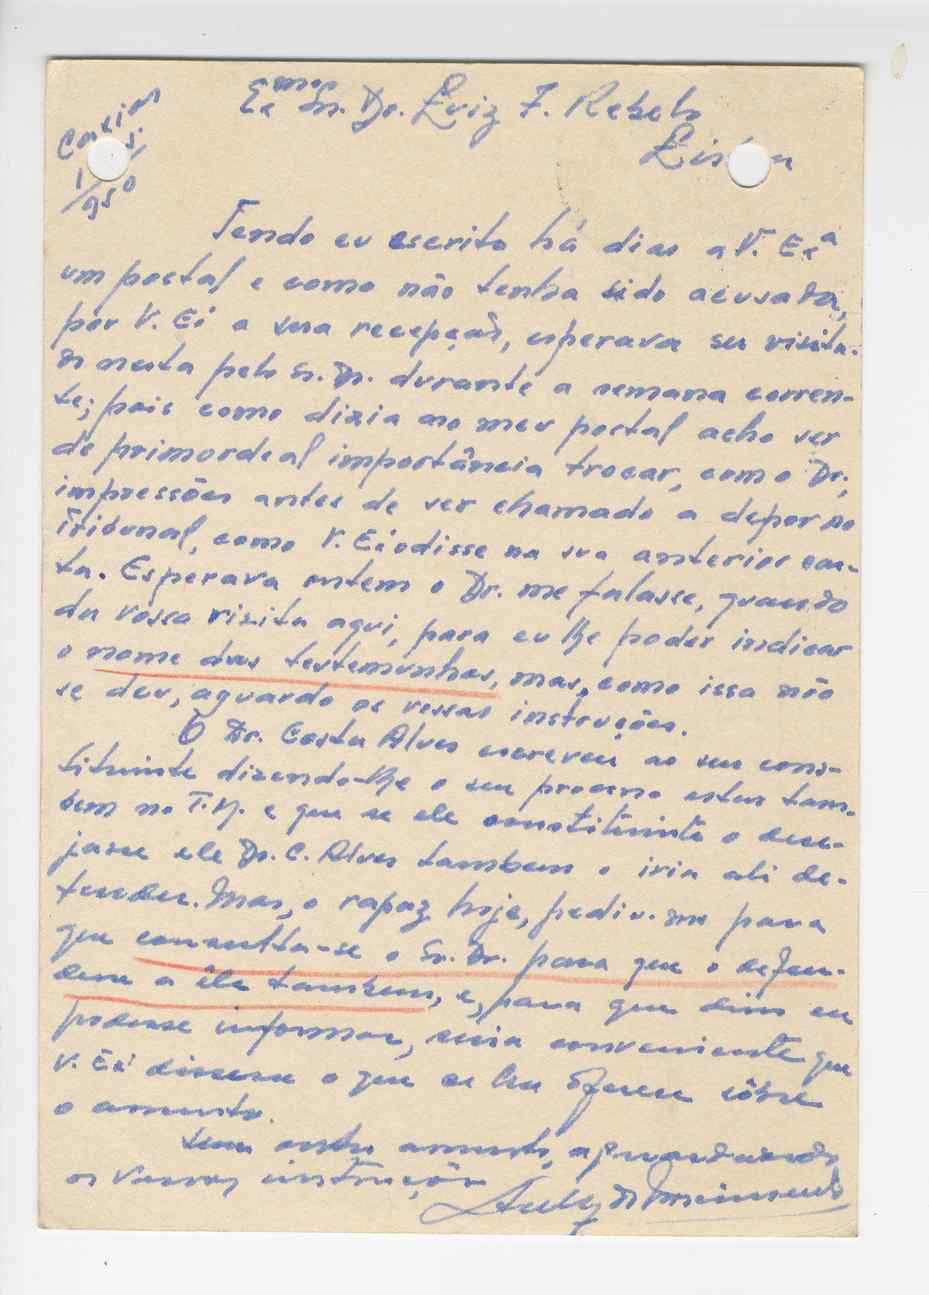 Exmo Sr. Dr. Luiz F. Rebelo
Lisboa
Caxias
1/950
Tendo eu escrito há dias a V. Exª
um postal e como não tenha sido acusada,
por V. Eª a sua recepção, esperava ser visita-
do nesta pelo Sr. Dr. durante a semana corren-
te; pois como dizia no meu postal acho ser
de primordeal importância trocar, com o Dr.,
impressões antes de ser chamado a depor no
Tribunal, como V. Eª o disse na sua anterior car-
ta. Esperava ontem o Dr. me falasse, quando
da vossa visita aqui, para eu lhe poder indicar
o nome das testemunhas, mas, como issa não
se deu, aguardo as vossas instruções.
O Dr. Costa Alves escreveu ao seu cons-
tituinte dizendo-lhe o seu processo estar tam-
bem no T.M. e que se ele constituinte o dese-
jasse ele Dr. C. Alves tambem o iria ali de-
fender. Mas, o rapaz hoje, pediu-me para
que consulta-se o Sr. Dr. para que o defen-
desse a êle tambem, e, para que disso eu
podesse informar, seria conveniente que
V. Eª dissesse o que se lhe oferece sôbre
o assunto.
Sem outro assunto, aguardando
as vossas instruções